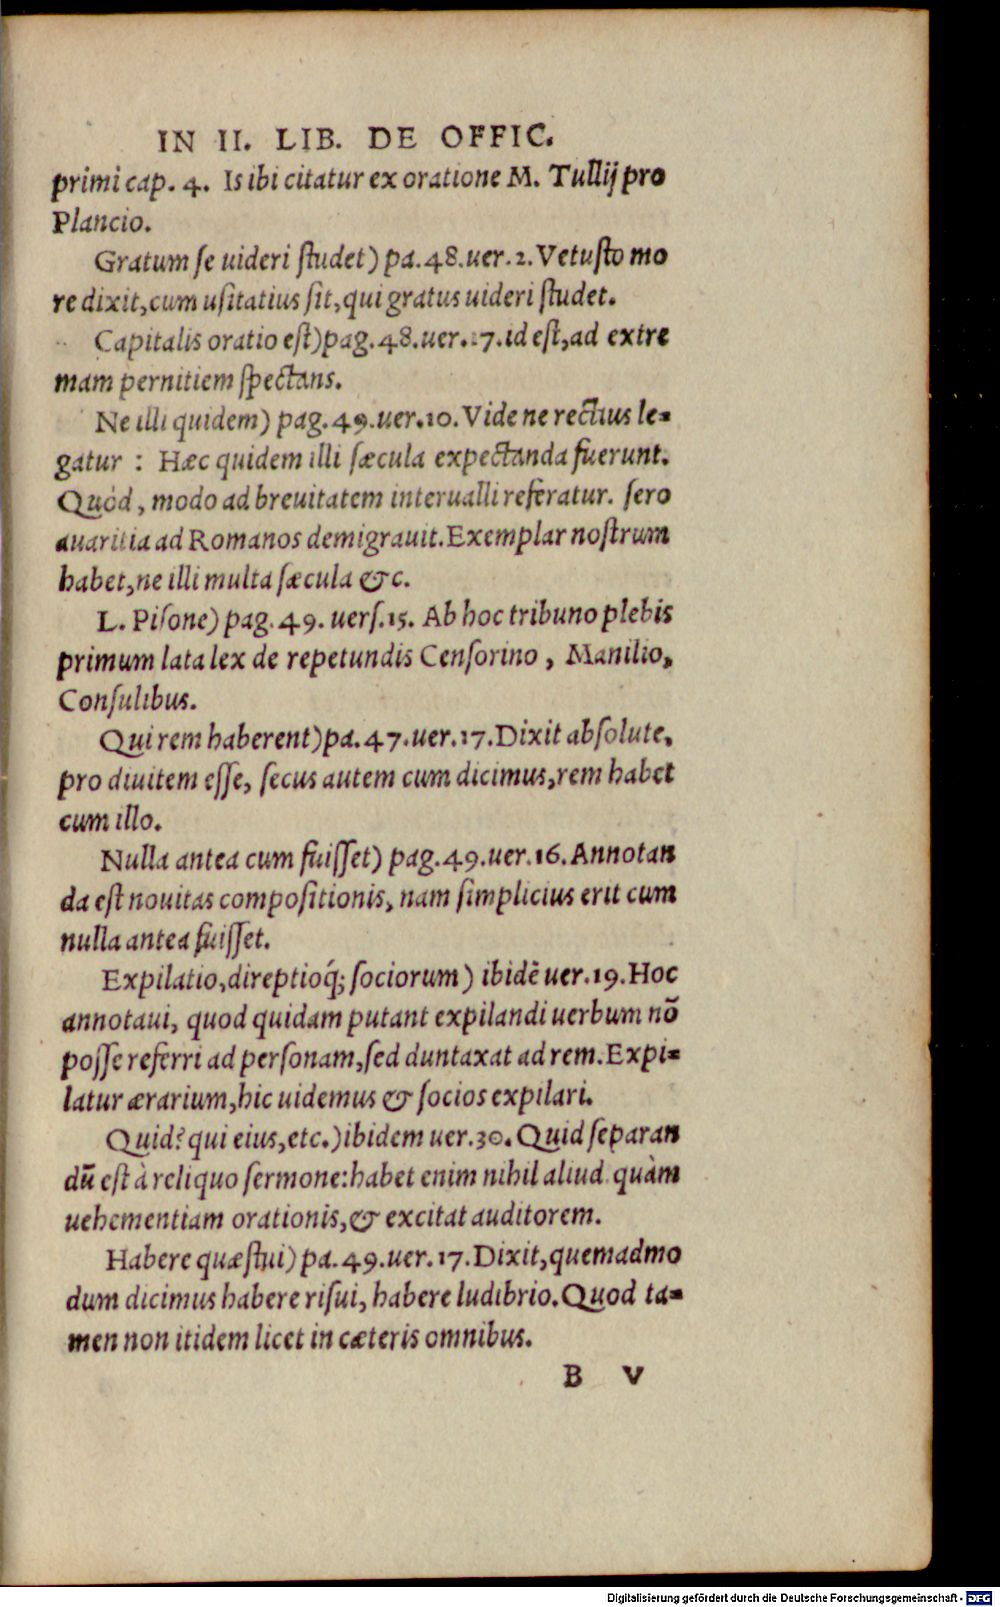 IN II. LIB. DE OFFIC.
primi cap. 4. Is ibi citatur ex oratione M. Tullij pro
Plancio.
Gratum se uideri studet) pa. 48. uer. 2. Vetusto mo
re dixit, cum usitatius sit, qui gratus uideri studet.
Capitalis oratio est) pag. 48. uer. 17. id est, ad extre
mam pernitiem spectans.
Ne illi quidem) pag. 49. uer. 10. Vide ne rectius le-
gatur : Hæc quidem illi sæcula expectanda fuerunt.
Quòd, modo ad breuitatem interualli referatur. sero
auaritia ad Romanos demigrauit. Exemplar nostrum
habet, ne illi multa sæcula &c.
L. Pisone) pag. 49. uers. 15. Ab hoc tribuno plebis
primum lata lex de repetundis Censorino, Manilio,
Consulibus.
Qui rem haberent) pa. 47. uer. 17. Dixit absolute,
pro diuitem esse, secus autem cum dicimus, rem habet
cum illo.
Nulla antea cum fuisset) pag. 49. uer. 16. Annotan
da est nouitas compositionis, nam simplicius erit cum
nulla antea fuisset.
Expilatio, direptioq́; sociorum) ibidē uer. 19. Hoc
annotaui, quod quidam putant expilandi uerbum nō
posse referri ad personam, sed duntaxat ad rem. Expi-
latur ærarium, hic uidemus & socios expilari.
Quid? qui eius, etc.) ibidem uer. 30. Quid separan
dū est à reliquo sermone: habet enim nihil aliud quàm
uehementiam orationis, & excitat auditorem.
Habere quæstui) pa. 49. uer. 17. Dixit, quemadmo
dum dicimus habere risui, habere ludibrio. Quod ta-
men non itidem licet in cæteris omnibus.
B V
Digitalisierung gefördert durch die Deutsche Forschungsgemeinschaft - DFG